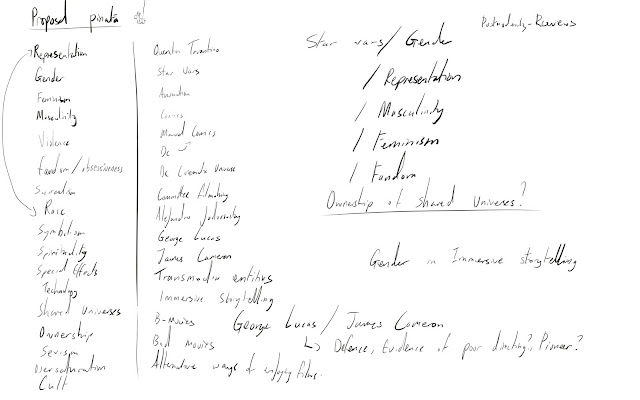 Proposal pinata
Representation
Gender
Feminism
Masculinity
Violence
Fandom/obsessiveness
Surrealism
Race
Symbolism
Spirituality
Special Effects
Technology
Shared Universes
Ownership
Sexism
Oversaturation
Cult
Quentin Tarantino
Star Wars
Animation
Comics
Marvel Comics
Dc
Dc Cinematic Universe
Committee filmmaking
Alejandro Jodorowsky
George Lucas
James Cameron
Transmedia entities
Immersive Storytelling
B-Movies
Bad Movies
Alternative ways of enjoying films.
Star wars/ Gender
/ Representation
/ Masculinity
/ Feminism
/ Fandom
Ownership of Shared Universes?
Gender in Immersive storytelling
George Lucas / James Cameron
↳ Defence, Evidence of poor directing?, Pioneer?